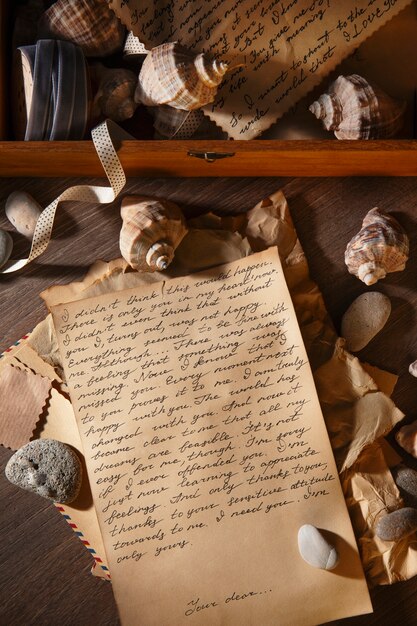 you give me so
But I
So I want to shout to the
wide world that I LOVE
I didn't think this would happen.
There is only you in my heart now.
I won't even think that without
you I, turns out, was not happy.
Everything seemed to be fine with
me. Although... There was always
a feeling that something was
missing. Now I know that I
missed you. Every moment next
to you proves it to me. I am truly
happy with you. The world has
changed with you. And now it
became clear to me that all my
dreams are feasible. It's not
easy for me, though. I'm sorry
if I ever offended you. I am
just now learning to appreciate
feelings. And only thanks to you,
thanks to your sensitive attitude
towards to me. I need you. I am
only yours.
Your dear...